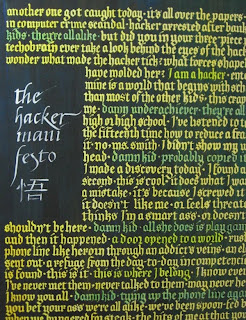 another one got caught today. it's all over the papers.
in computer crime scandal. hacker arrested after bank
kids. they're all alike. but did you in your three piece
technobrain ever take a look behind the eyes of the hac
wonder what made the hacker tick. what forces shape
have molded her. I am a hacker. en
mine is a world that begins with sch
than most of the other kids. this crap
me. damn underachiever. they're all
high or high school. I've listened to t
the fifteenth time how to reduce a fra
it. no. ms. smith. I didn't show my w
head. damn kid. probably copied i
I made a discovery today. I found a
second. this is cool. it does what I wa
a mistake. it's because I screwed it
it doesn't like me. or feels threate
thinks I'm a smart ass. or doesn't
shouldn't be here. damn kid. all she does is play gam
and then it happened. a door opened to a world. rus
phone line like heroin through an addict's veins. an el
sent out. a refuge from the day to day incompetenci
is found. this is it. this is where I belong. I know ever
I've never met them. never talked to them. may never he
I know you all. damn kid. tying up the phone line aga
you bet your ass we're all alike. we've been spoon-fed b
when we hungered for steak. the bits of meat that you
the
hacker
mani
festo
悟